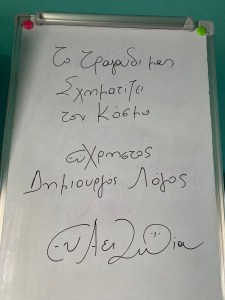 Το Τραγούδι μας
Σχηματίζει
τον Κόσμο
εὔχρηστος
Δημιουργός Λόγος